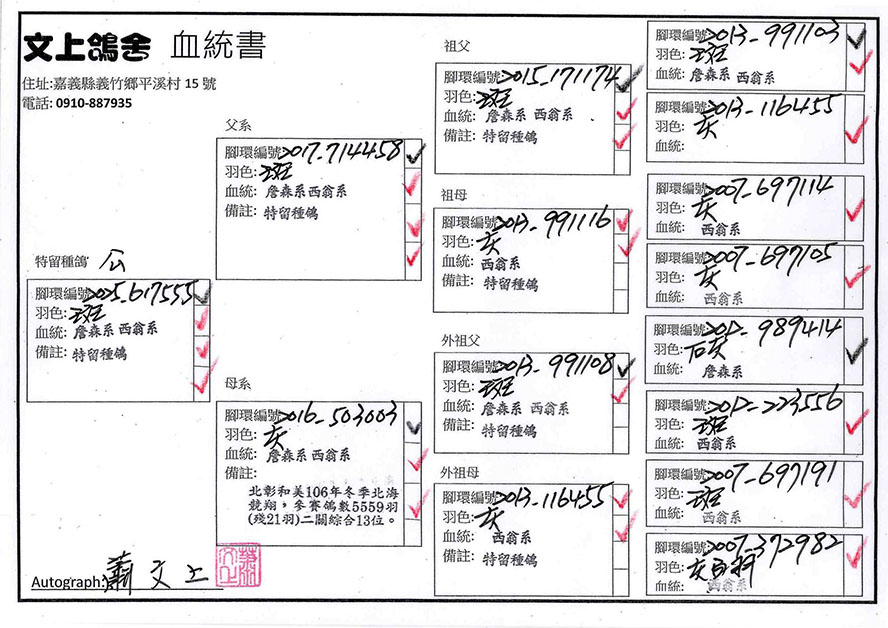 文上鴿舍 血統書
住址:嘉義縣義竹鄉平溪村 15 號
電話: 0910-887935
特留種鴿 公
腳環編號2025-617555
羽色:斑
血統: 詹森系 西翁系
備註: 特留種鴿
父系
腳環編號2017-714458
羽色:斑
血統: 詹森系西翁系
備註: 特留種鴿
母系
腳環編號2016-503003
羽色:灰
血統: 詹森系西翁系
備註:
北彰和美106年冬季北海
競翔，參賽鴿數5559羽
(殘21羽)二關綜合13位。
祖父
腳環編號2015-171174
羽色:斑
血統: 詹森系 西翁系
備註: 特留種鴿
祖母
腳環編號2013-991116
羽色:灰
血統: 西翁系
備註: 特留種鴿
外祖父
腳環編號2013-991108
羽色:斑
血統: 詹森系 西翁系
備註: 特留種鴿
外祖母
腳環編號2013-116455
羽色:灰
血統: 西翁系
備註: 特留種鴿
腳環編號2013-991103
羽色:斑
血統: 詹森系 西翁系
腳環編號2013-116455
羽色:灰
血統:
腳環編號2007-697114
羽色:灰
血統: 西翁系
腳環編號2007-697105
羽色:灰
血統: 西翁系
腳環編號2012-989414
羽色:石灰
血統: 詹森系
腳環編號2012-223556
羽色:斑
血統: 西翁系
腳環編號2007-697191
羽色:斑
血統: 西翁系
腳環編號2007-372982
羽色:灰白羽
血統: 西翁系
Autograph: 蕭文上